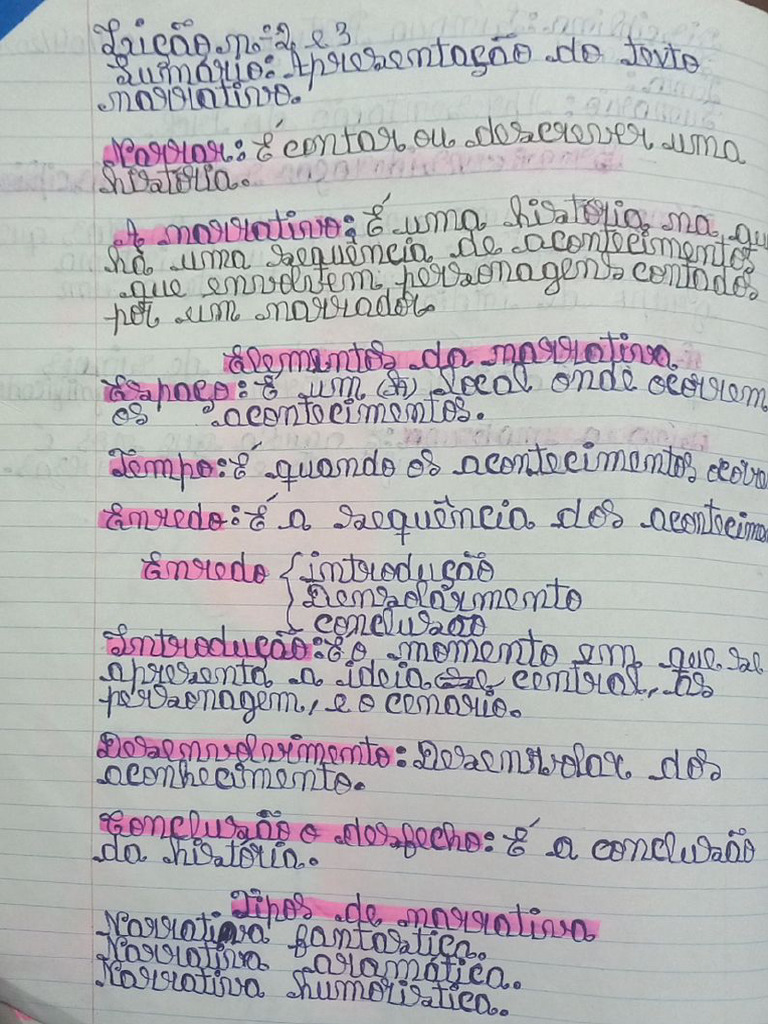 Lição n-: 2 e 3
Sumário: Apresentação do texto
narrativo.
Narrar: É contar ou descrever uma
história.
A narrativa: É uma história na qu
há uma sequência de acontecimentos
que envolvem personagens contados
por um narrador.
Elementos da narrativa
Espaço: É um local onde ocorrem
os acontecimentos.
Tempo: É quando os acontecimentos ocorr
Enredo: É a sequência dos acontecime
Enredo { introdução
Densolarmento
conclusão
Introdução: É o momento em que se
apresenta a ideia central, as
personagem, e o cenario.
Desenvolvimento: Desenvolar dos
aconhecimento.
Conclusão o desfecho: É a conclusão
da história.
Tipos de narrativa
Narrativa fantastica.
Narrativa aramática.
Narrativa humoristica.